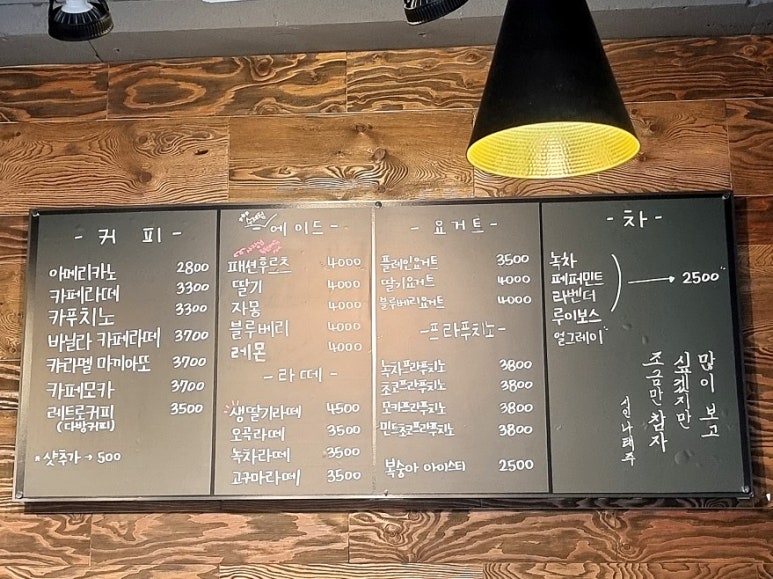 - 커 피 -
아메리카노 2800
카페라떼 3300
카푸치노 3300
바닐라 카페라떼 3700
캬라멜 마끼아또 3700
카페모카 3700
레트로커피 3500
(다방커피)
*샷추가 → 500
- 에이드 -
패션후르츠 4000
딸기 4000
자몽 4000
블루베리 4000
레몬 4000
- 라떼 -
생딸기라떼 4500
오곡라떼 3500
녹차라떼 3500
고구마라떼 3500
- 요거트 -
플레인요거트 3500
딸기요거트 4000
블루베리요거트 4000
- 프라푸치노 -
녹차프라푸치노 3800
초코프라푸치노 3800
모카프라푸치노 3800
민트초코프라푸치노 3800
복숭아 아이스티 2500
- 차 -
녹차
페퍼민트
라벤더 → 2500
루이보스
얼그레이
많이 보고
싶겠지만
조금만 참자
시인 나태주